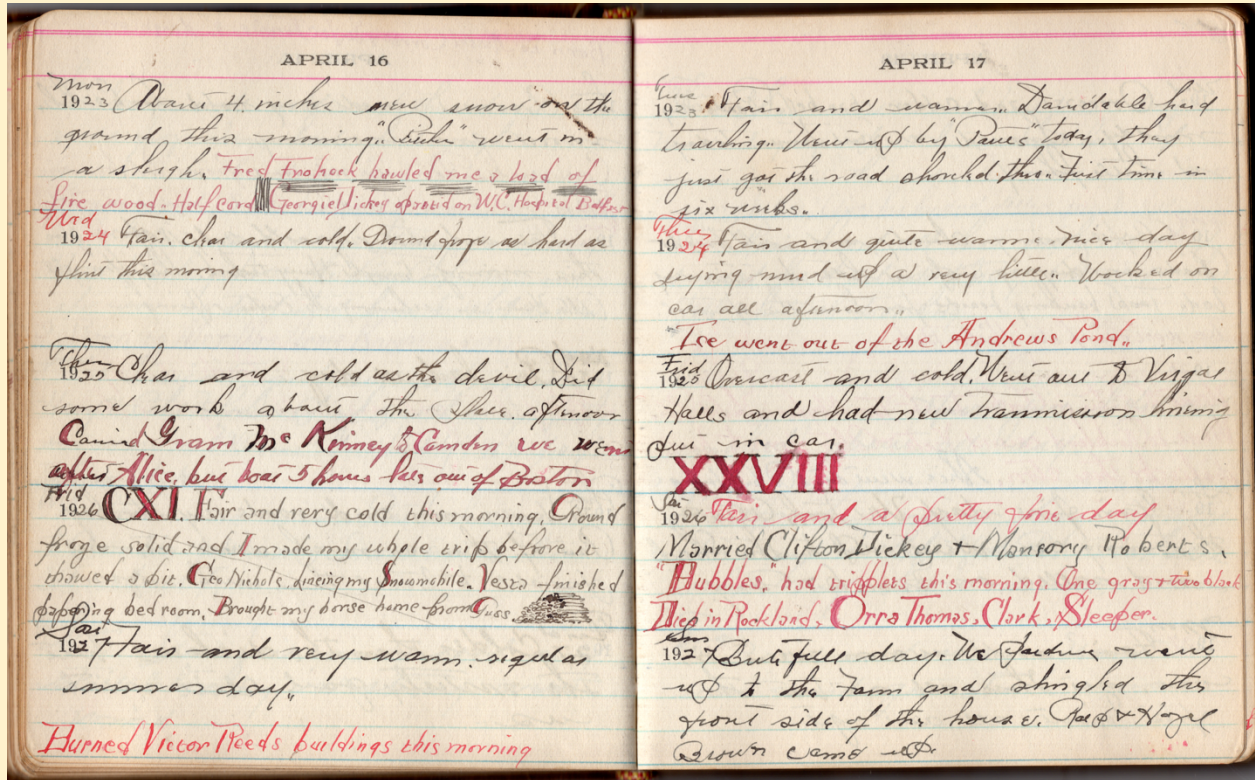 APRIL 16
Mon
1923 About 4 inches new snow on the
ground this morning. "Pitcher" went in
a sleigh. Fred Frohock hawled me a load of
fire wood. Half cord Georgie Dickey opreted on W.C. Hospital Belfast
Wed
1924 Fair. clear and cold. Ground froze as hard as
flint this morning
Thur
1925 Clear and cold as the devil. Did
some work about the place. afternoon
Carried Gram Mc Kinney to Camden we went
after Alice, but boat 5 hours late out of Boston
Frid
1926 CXI. Fair and very cold this morning. Ground
froze solid and I made my whole trip before it
thawed a bit. Geo Nichols. my Snowmobile. Vesta finished
papering bed room. Brought my horse home from Guss.
Sat
1927 Fair and very warm. regular
summer day.
Burned Victor Reeds buildings this morning
APRIL 17
Tues
1923 Fair and warmer. Damdable hard
traveling. Went up by "Paves" today, they
just got the road shoveled thru. First time in
six weeks.
Thur
1924 Fair and quite warme. nice day
drying mud up a very little. Worked on
car all afternoon.
Ice went out of the Andrews Pond.
Frid
1925 Overcast and cold. Went out to Virgal
Halls and had new transmission lineing
put in car.
XXVIII
Sat
1926 Fair and a pretty fine day
Married Clifton Dickey + Mansory Roberts.
"Bubbles," had tripplets this morning. One gray + two black
Died in Rockland, Orra Thomas, Clark, Sleeper.
Sun
1927 Butifull day. We went
up to the Farm and shingled the
front side of the house. + Hazel
Brown came up.